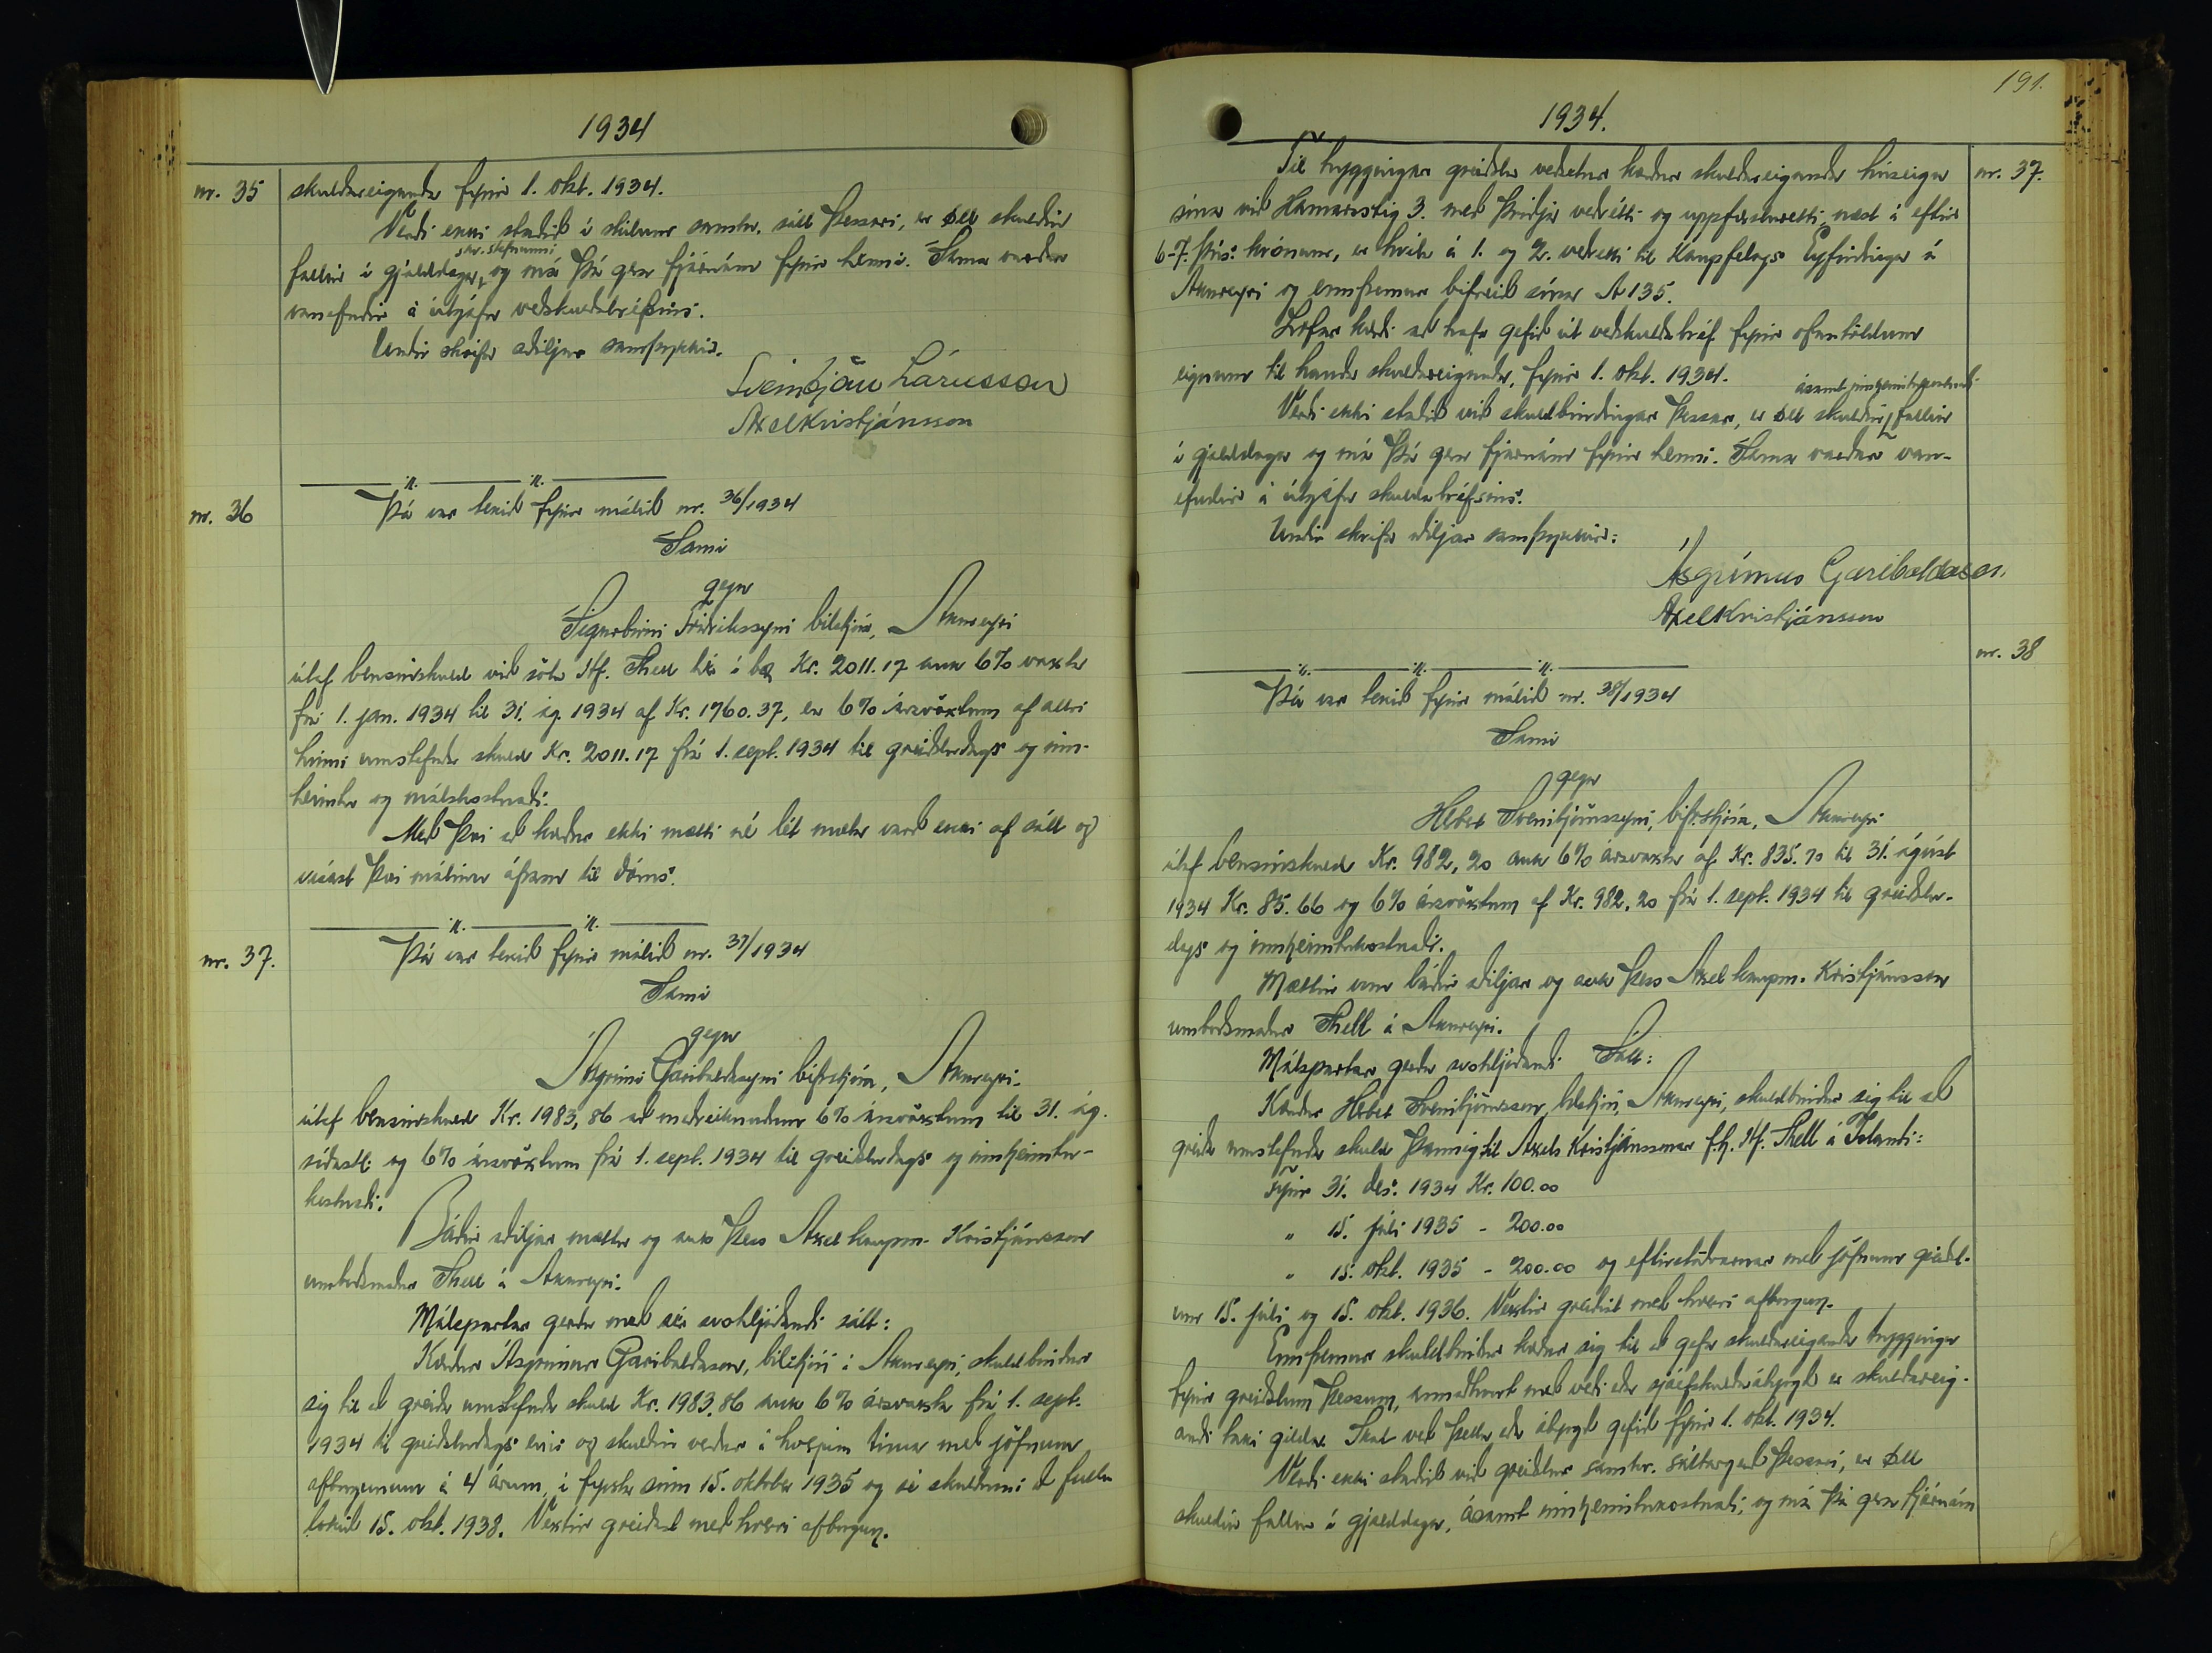 1934
nr. 35
skuldareiganda fyrir 1. okt. 1934.
Verði ekki staðið í skilum samkv. sátt þessari, er öll skuldin
skv. stefnunni
fallin í gjalddaga, og má þá gera fjárnám fyrir henni. Sama varðar
vanefndir á útgáfu veðskuldabréfsins.
Undir skrifa aðiljar samþykkir.
Sveinbjörn Lárusson
Axel Kristjánsson
nr. 36
Þá var tekið fyrir málið nr. 36/1934
Sami
gegn
Sigurbirni Friðrikssyni bílstjóra, Akureyri
útaf bensínskuld við sölu Hf. Shell hér í bæ Kr. 2011.17 auk 6% vaxta
frá 1. jan. 1934 til 31. ág. 1934 af Kr. 1760.37, en 6% ársvöxtum af allri
hinni umstefndu skuld Kr. 2011.17 frá 1. sept. 1934 til greiðsludags og inn-
heimtu og málskostnaði.
Með því að kærður ekki mætti né lét mæta varð ekki af sátt og
vísast því málinu áfram til dóms.
nr. 37.
Þá var tekið fyrir málið nr. 37/1934
Sami
gegn
Ásgrími Garibaldasyni bifrstjóra, Akureyri.
útaf bensínskuld Kr. 1983,86 að meðreiknuðum 6% ársvöxtum til 31. ág.
síðastl. og 6% ársvöxtum frá 1. sept. 1934 til greiðsludags og innheimtu-
kostnaði.
Báðir aðiljar mættu og auk þess Axel kaupm. Kristjánsson
umboðsmaður Shell á Akureyri.
Málspartar gerðu með sér svohljóðandi sátt:
Kærður Ásgrímur Garibaldason, bílstjóri í Akureyri, skuldbindur
sig til að greiða umstefnda skuld Kr. 1983.86 auk 6% ársvaxta frá 1. sept.
1934 til greiðsludags og skuldin verður í hverjum tíma með jöfnum
afborgunum á 4 árum, í fyrsta sinn 15. oktober 1935 og sé skuldinni að fullu
lokið 15. okt. 1938. Vextir greiðist með hverri afborgun.
191.
1934.
nr. 37.
Til tryggingar greiðslu veðsetur kærður skuldareiganda húseign
sína við Hamarstíg 3. með þriðja veðrétti og uppfærslurétti næst á eftir
6-7. þús. krónum, er hvíla á 1. og 2. veðrétti til Kaupfélags Eyfirðinga á
Akureyri og ennfremur bifreið sína A 135.
Lofar kærði að hafa gefið út veðskuldabréf fyrir ofantöldum
eignum til handa skuldareiganda, fyrir 1. okt. 1934.
ásamt innheimtukostnaði
Verði ekki staðið við skuldbindingar þessar, er öll skuldin fallin
í gjalddaga og má þá gera fjárnám fyrir henni. Sama varðar van-
efndir á útgáfu skuldabréfsins.
Undir skrifa aðiljar samþykkir:
Ásgrímur Garibaldason.
Axel Kristjánsson
nr. 38
Þá var tekið fyrir málið nr. 38/1934
Sami
gegn
Heber Sveinbjörnssyni, bifrstjóra, Akureyri
útaf bensínskuld Kr. 982,20 auk 6% ársvaxta af Kr. 835.70 til 31. ágúst
1934 Kr. 85.66 og 6% ársvöxtum af Kr. 982,20 frá 1. sept. 1934 til greiðslu-
dags og innheimtukostnaði.
Mættir eru báðir aðiljar og auk þess Axel kaupm. Kristjánsson
umboðsmaður Shell á Akureyri.
Málspartar gerðu svohljóðandi Sátt:
Kærður Heber Sveinbjörnsson, bílstjóri, Akureyri, skuldbindur sig til að
greiða umstefnda skuld þannig til Axels Kristjánssonar f.h. Hf. Shell á Íslandi:
Fyrir 31. des. 1934 Kr. 100.00
" 15. júlí 1935 - 200.00
" 15. okt. 1935 - 200.00 og eftirstöðvarnar með jöfnum greiðsl-
um 15. júlí og 15. okt. 1936. Vextir greiðist með hverri afborgun.
Ennfremur skuldbindur kærður sig til að gefa skuldareiganda tryggingu
fyrir greiðslum þessum, annaðhvort með veði eða sjálfskuldarábyrgð er skuldareig-
andi tekur gilda. Skal veð þetta eða ábyrgð gefið fyrir 1. okt. 1934.
Verði ekki staðið við greiðslur samkv. sáttargerð þessari, er öll
skuldin fallin í gjalddaga, ásamt innheimtukostnaði, og má þá gera fjárnám